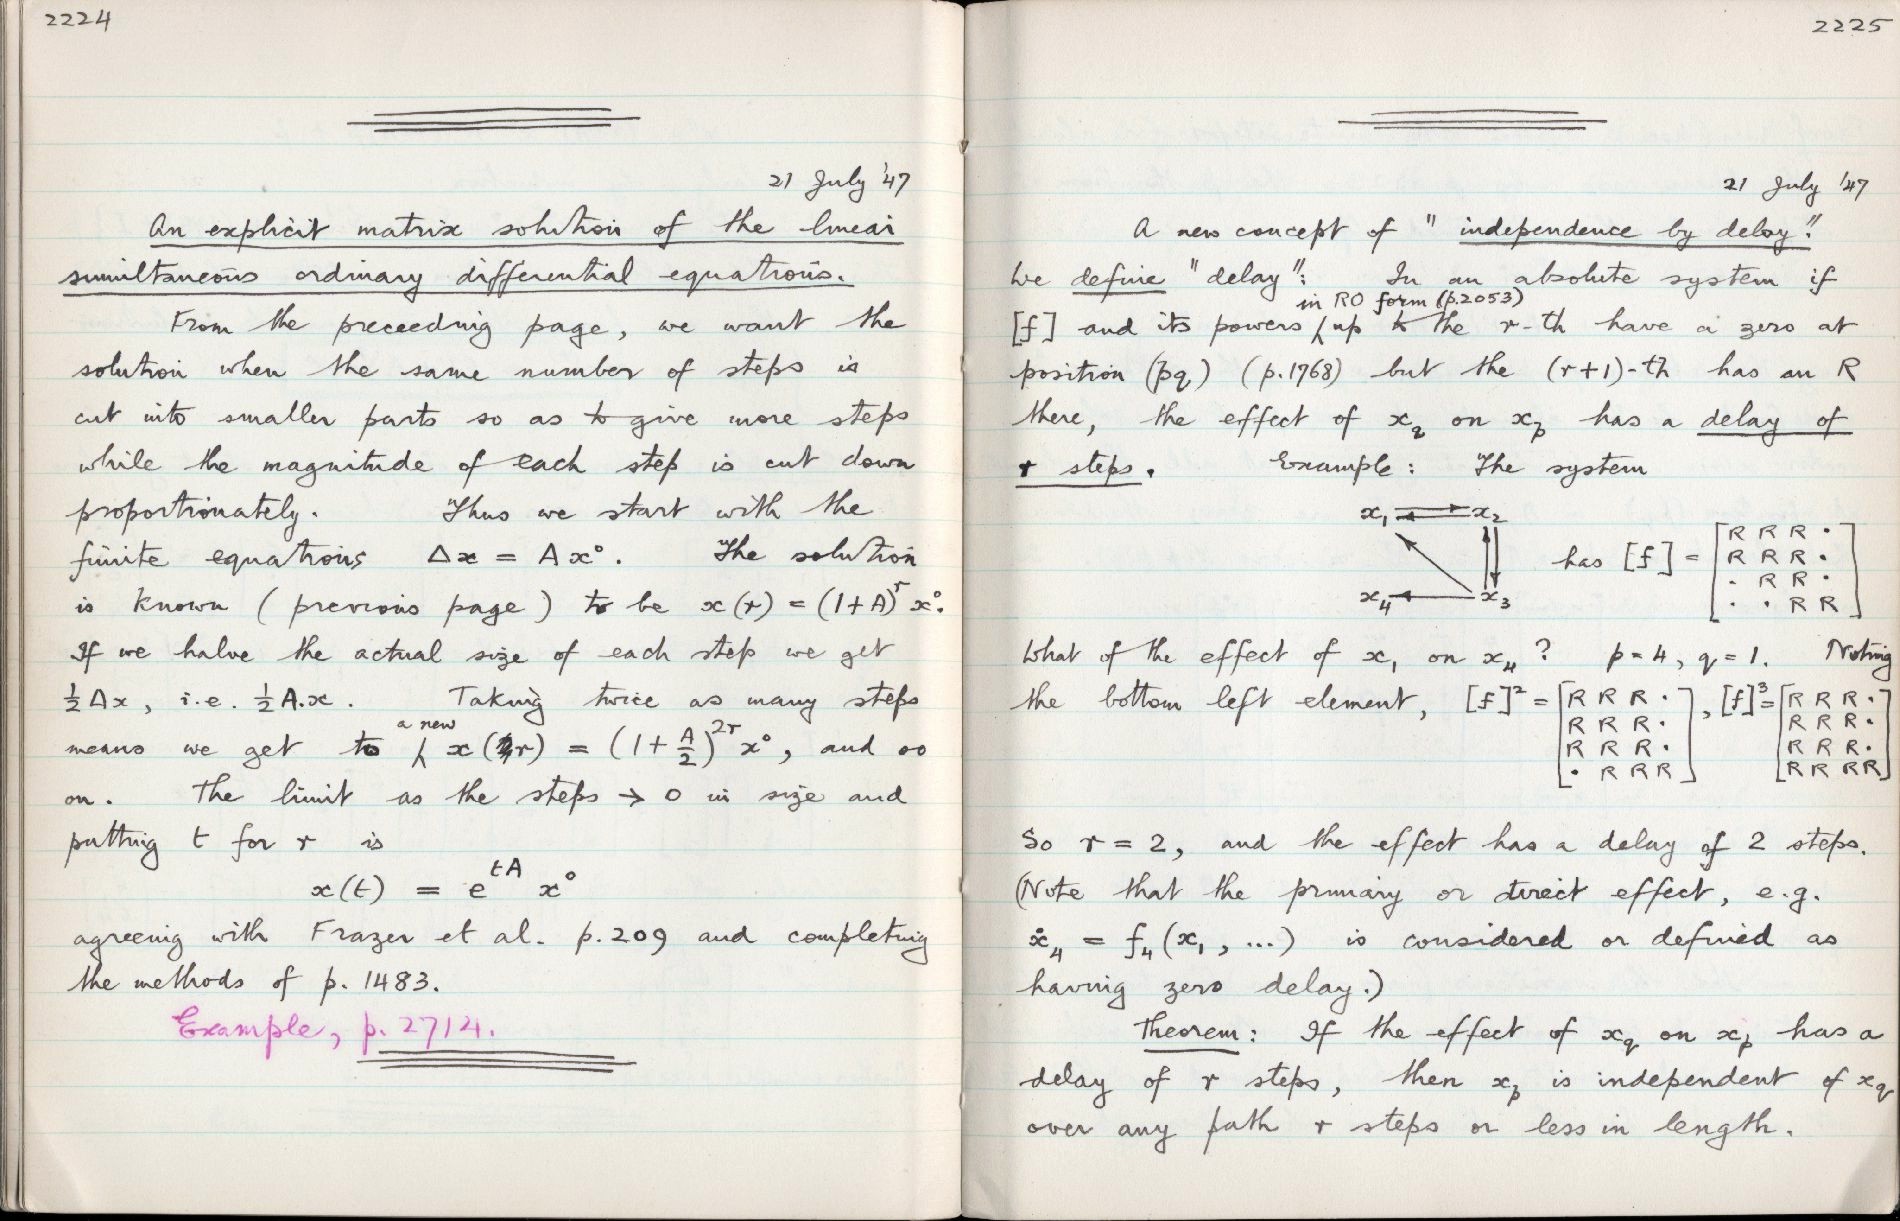 2224
21 July '47
An explicit matrix solution of the linear
simultaneous ordinary differential equations.
From the preceeding page, we want the
solution when the same number of steps is
cut into smaller parts so as to give more steps
while the magnitude of each step is cut down
proportionately. Thus we start with the
finite equations Δx = Ax°. The solution
is known (previous page) to be x(r) = (1+A)^r x°.
If we halve the actual size of each step we get
½Δx, i.e. ½A.x. Taking twice as many steps
a new
means we get to x(2r) = (1+A/2)^2r x°, and so
on. The limit as the steps → 0 in size and
putting t for r is
x(t) = e^tA x°
agreeing with Frazer et al. p.209 and completing
the methods of p. 1483.
Example, p. 2714.
2225
21 July '47
A new concept of "independence by delay".
We define "delay": In an absolute system if
in RO form (p.2053)
[f] and its powers up to the r-th have a zero at
position (pq) (p.1768) but the (r+1)-th has an R
there, the effect of x_q on x_p has a delay of
r steps. Example: The system
x₁ ⇄ x₂
has [f] =
R R R ·
R R R ·
· R R ·
· · R R
x₄ ← x₃
What of the effect of x₁ on x₄? p=4, q=1. Noting
the bottom left element, [f]² = [R R R ·], [f]³ = [R R R ·]
R R R · R R R ·
R R R · R R R ·
· R R R R R R R
So r = 2, and the effect has a delay of 2 steps.
(Note that the primary or direct effect, e.g.
ẋ₄ = f₄(x₁, ...) is considered or defined as
having zero delay.)
Theorem: If the effect of x_q on x_p has a
delay of r steps, then x_p is independent of x_q
over any path r steps or less in length.